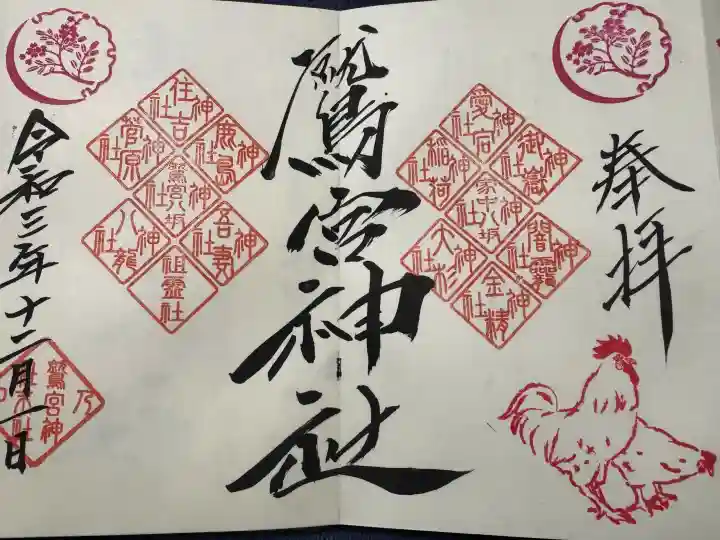 奉拝
愛宕神社
御嶽神社
稲荷神社
家中八坂神社
闇龗神社
大杉神社
金精神社
鷲宮神社
住吉神社
鹿島神社
菅原神社
鷲宮八坂神社
吾妻神社
八龍神社
祖霊社
令和三年十二月一日
鷲宮神社